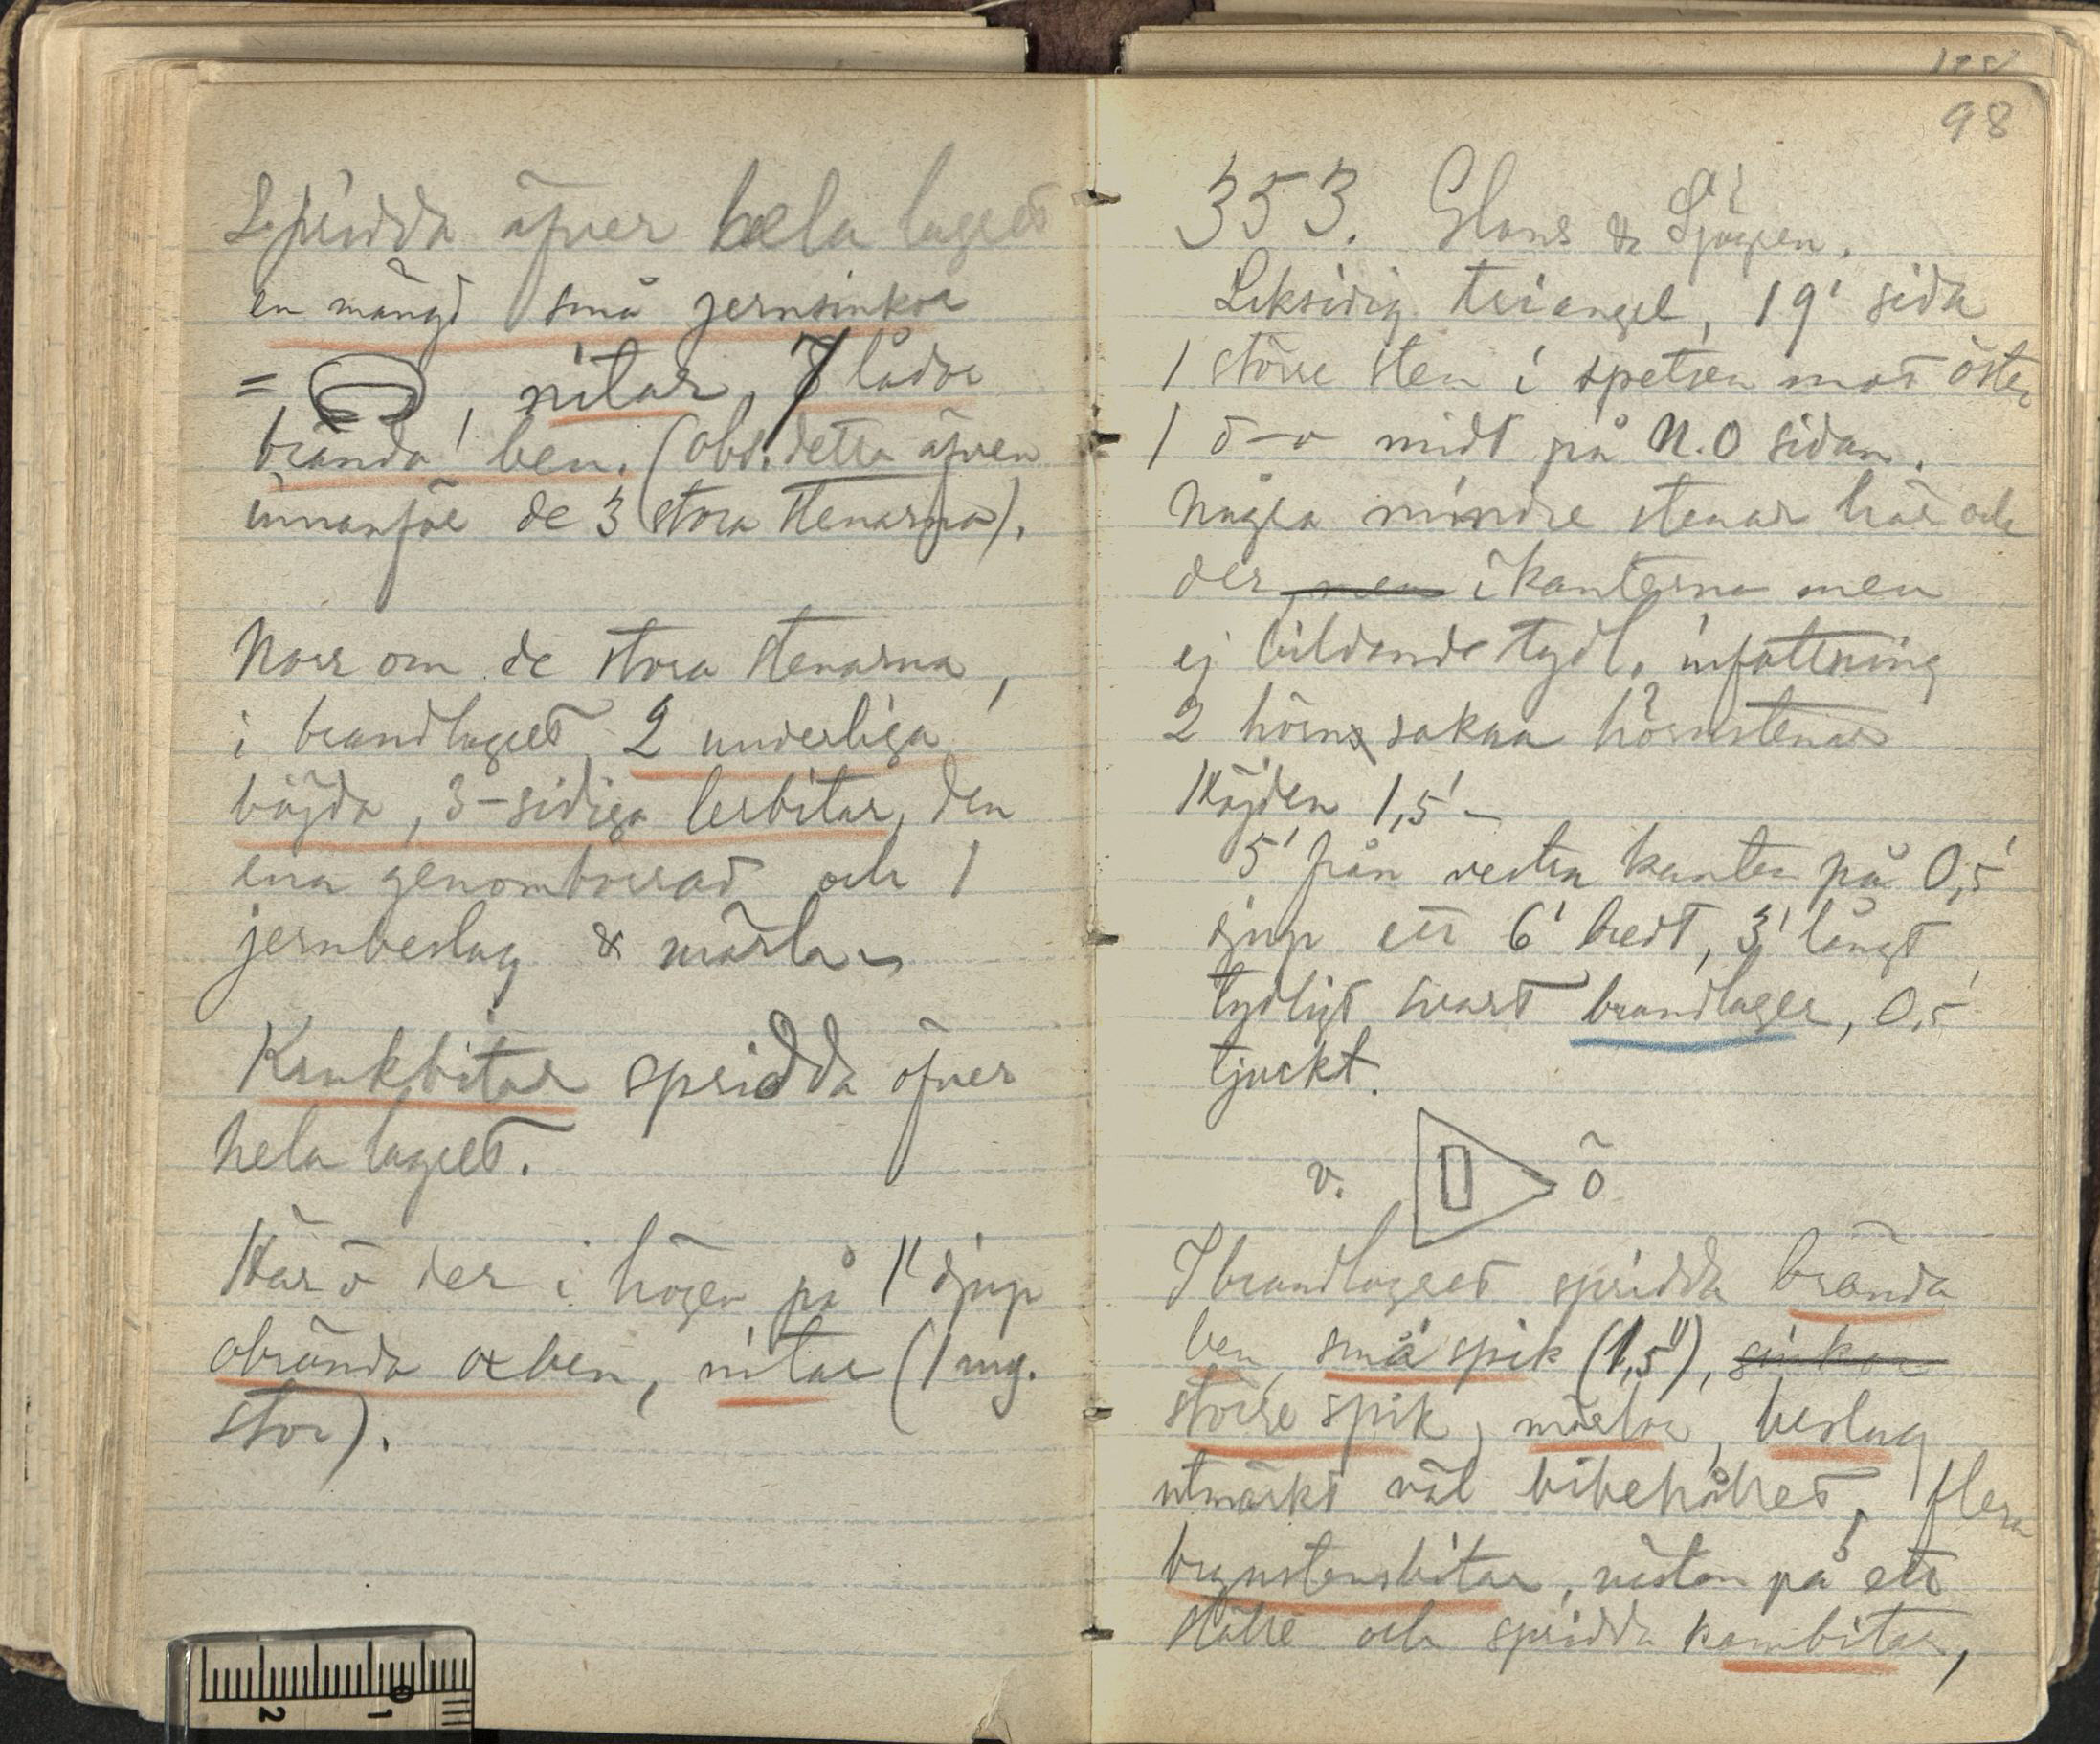 Spridda öfver hela lagret
en mängd små jernsinkor
= , nitar, 7 lådor
brända ben. (obs. detta äfven
innanför de 3 stora stenarna).
Norr om de stora stenarna,
i brandlagret, 2 underliga
böjda, 3-sidiga lerbitar, den
ena genomborrad och 1
jernbeslag & märla
Krukbitar spridda öfver
hela lagret.
Här o der i högen på 1' djup
obrända oxben, nitar (1 mg.
stor).
98
353. Glans & Sjögren.
Liksidig triangel, 19' sida
1 större sten i spetsen mot öster
1 d-o midt på N.O sidan.
Några mindre stenar här och
der men i kanterna men
ej bildande tydl. infattning
2 hörn sakna hörnstenar
Höjden 1,5'
5' från vestra kanten på 0,5'
djup ett 6' bredt, 3' långt
tydligt svart brandlager, 0,5'
tjockt.
v. ö
I brandlagret spridda brända
ben, små spik (1,5"), sinkor
större spik, märlor, beslag
utmärkt väl bibehållet, flera
brynstensbitar, nästan på ett
ställe och spridda kambitar,
2 1 0